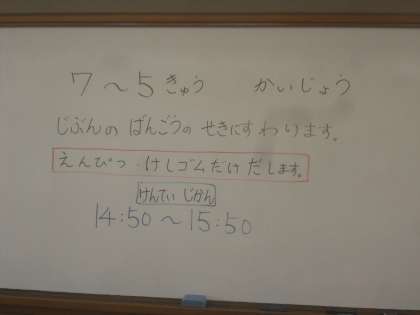 7～5きゅう かいじょう
じぶんの ばんごうの せきにすわります。
えんぴつ・けしゴムだけ だします。
けんてい じかん
14:50～15:50